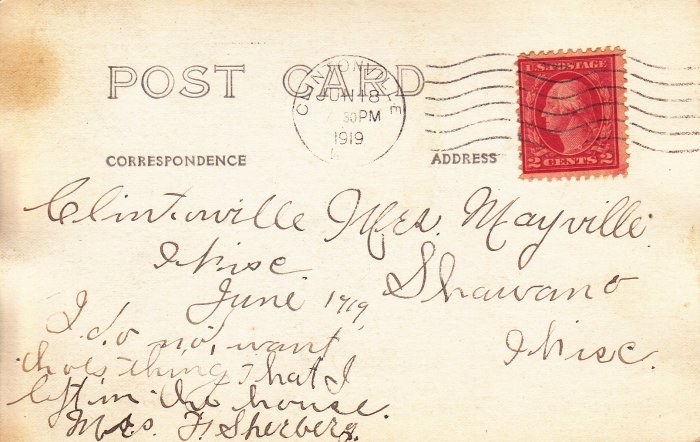 POST CARD
CLINTONVILLE
JUN 18
30PM
1919
U.S. POSTAGE
2 CENTS 2
CORRESPONDENCE
ADDRESS
Clintonville
Wisc
June 1919
I do no, want
thoes thing that I
left in the house.
Mrs. F. Sherberg.
Mrs. Mayville
Shawano
Wisc.